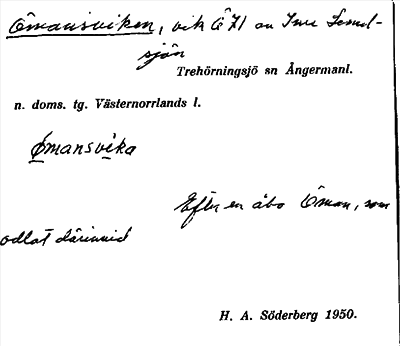 Ömansviken, vik Ö 71 av Inre Lemel-
sjön
Trehörningsjö sn Ångermanl.
n. doms. tg. Västernorrlands l.
Ømansvika
Efter en åbo Öman, som
odlat därinvid
H. A. Söderberg 1950.